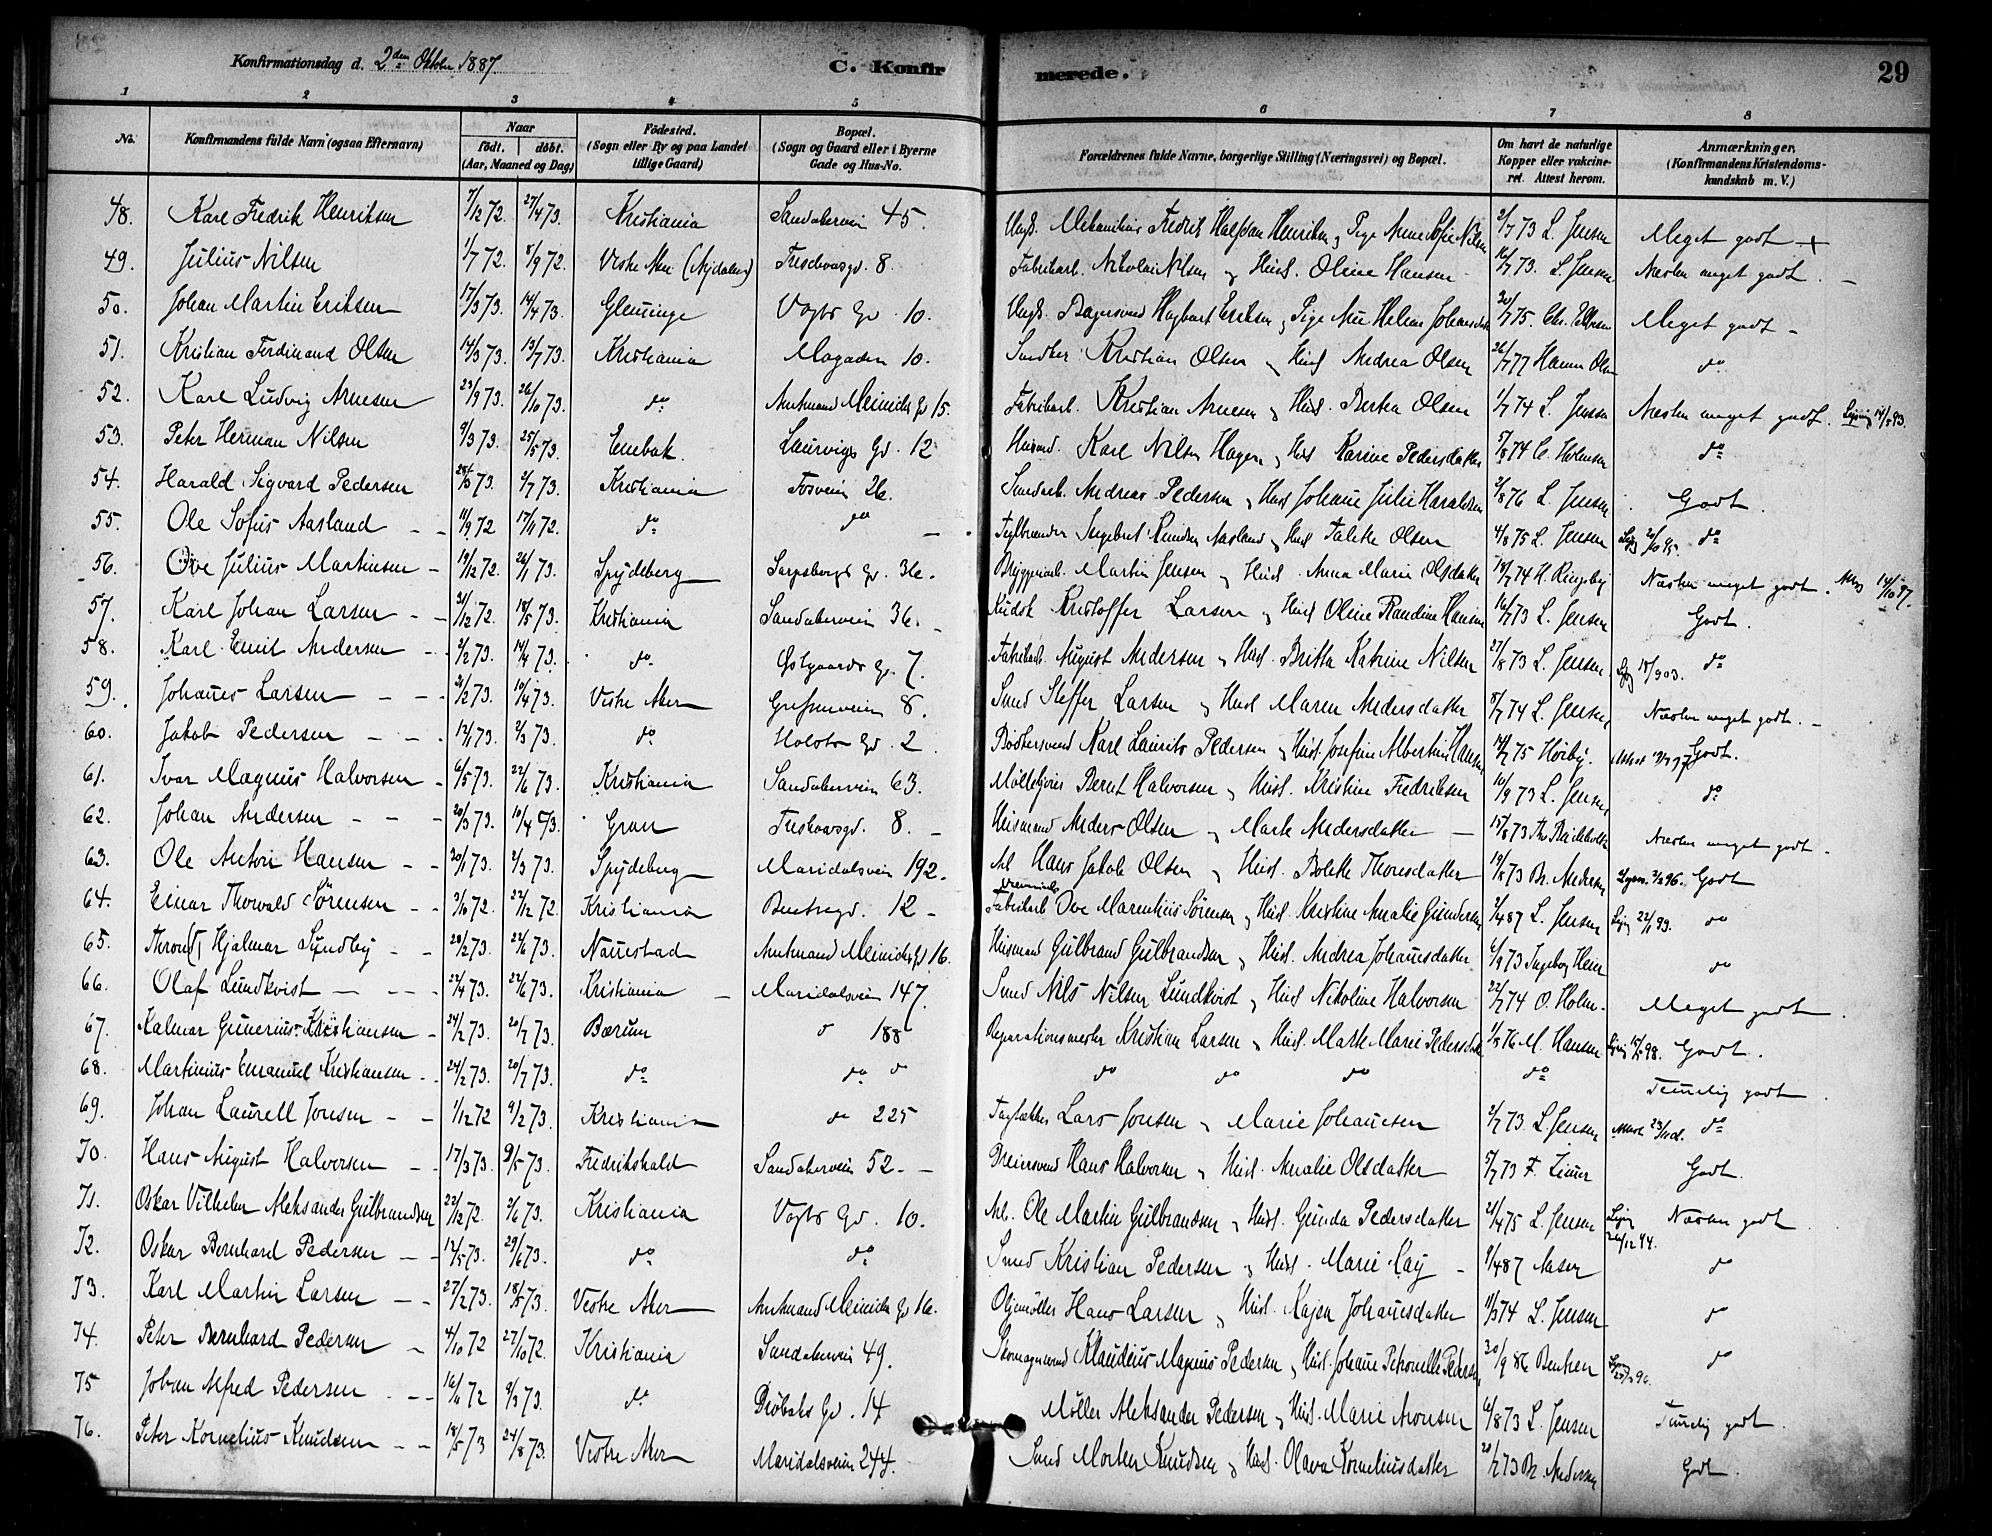 Konfirmationsdag d. 2den Oktober 1887. C. Konfirmerede. 29
1 2 3 4 5 6 7 8
No. Konfirmandens fulde Navn (ogsaa Efternavn) Naar födt. döbt. (Aar, Maaned og Dag) Födested. (Sogn eller By og paa Landet tillige Gaard) Bopæl. (Sogn og Gaard eller i Byerne Gade og Hus-No. Forældrenes fulde Navne, borgerlige Stilling (Næringsvei) og Bopæl. Om havt de naturlige Kopper eller vakcineret. Attest herom. Anmærkninger. (Konfirmandens Kristendomskundskab m. V.)
48. Karl Fredrik Henriksen 7/12 72. 27/4 73. Kristiania Sandakerveien 45. Fredrik Halfdan Henriksen & Pige Anne Sofie Nilsen 2/7 73 L. Jensen Meget godt
49. Julius Nilsen 1/7 72. 8/9 72. Vestre Aker (Nydalen) 8. Fabrikarb. Nikolai Nilsen & Hust. Oline Hansen 16/7 73. L. Jensen Næsten meget godt.
50. Johan Martin Eriksen 17/3 73. 14/4 73. Glemminge Vogts Gd. 10. Ungk. Bagersvend Hagbart Eriksen & Pige 20/7 75. Meget godt
51. Kristian Ferdinand Olsen 14/3 73. 13/7 73. Kristiania 10. Snedker Kristian Olsen & Hust. Andrea Olsen 26/7 77 do
52. Karl Ludvig Arnesen 23/9 73. 26/10 73. do Amtmand Meinichs Gd 15. Fabrikarb. Kristian Arnesen & Hust. Berthea Olsen 1/7 74 L. Jensen Næsten meget godt.
53. Peter Herman Nilsen 9/3 73. 25/5 73. Enebak. Laurvigs Gd. 12 Husmd. Karl Nilsen Hagen & Hust Karine Pedersdatter 5/8 74 C. Holmsen do
54. Harald Sigvard Pedersen 73. 2/7 73. Kristiania Fosveien 26. Andreas Pedersen & Hust Johanne Julie Haraldsen 2/8 76 L. Jensen Godt.
55. Ole Sofus Aasland 11/9 72 17/11 72. do do Teglbrænder Ingebret Knudsen Aasland & Hust Olsen 4/8 75 L. Jensen do
56. Ove Julius Martinsen 19/12 72. 26/1 73. Spydeberg Sarpsborgs Gd. 36. Martin Jensen & Hust. Anna Marie Olsdatter 18/7 74 H. Ringsby Næsten meget godt.
57. Karl Johan Larsen 31/12 72. 18/5 73. Kristiania Sandakerveien 36. Kudsk Kristoffer Larsen & Hust Oline Randine Hansen 16/7 73 L. Jensen Godt.
58. Karl Emil Andersen 2/2 73. 14/4 73. do Østgaards Gd. 7. Fabrikarb. August Andersen & Hust. Britta Katrine Nilsen 27/8 73 L. Jensen 18/9 03. do
59. Johannes Larsen 21/2 73. 10/4 73. Vestre Aker Grefsenveien 8. Smed Steffen Larsen & Hust Maren Andersdatter 8/7 74 L. Jensen Næsten meget godt.
60. Jakob Pedersen 12/1 73. 2/3 73. do Holsts Gd. 2. Bødkersvend Karl Laurits Pedersen & Hust. Josefine Albertine Hansen 75 Høiby. Godt.
61. Ivar Magnus Halvorsen 6/5 73. 22/6 73. Kristiania Sandakerveien 63. Bernt Halvorsen & Hust. Kristine Fredriksen 10/9 73 L. Jensen do
62. Johan Andersen 20/3 73. 10/4 73. Gran 8. Husmand Anders Olsen & Marte Andersdatter 15/8 73 Næsten meget godt.
63. Ole Anton Hansen 20/1 73. 2/3 73. Spydeberg Maridalsveien 192. Arb Hans Jakob Olsen & Hust. Bolette Thoresdatter 19/8 73 Br. Andersen Godt
64. Einar Thorvald Sörensen 3/10 72. 22/12 72. Kristiania Bentsegd. 12 Fabrikarb Ove Marentius Sörensen & Hust. Kristine Amalie Gundersen 2/4 87 L. Jensen do
65. Thrond Hjalmar Sundby 28/2 73. 22/6 73. Nannestad Amtmand Meinichs Gd 16. Husmand Gulbrand Gulbrandsen & Hust. Andrea Johannesdatter 6/9 73 Ingeborg Heier do
66. Olaf Lundkvist 22/4 73. 22/6 73. Kristiania Maridalsveien 147. Smed Nils Nilsen Lundkvist & Hust Nikoline Halvorsen 22/7 74 O. Holm. Meget godt.
67. Kalmar Gunerius Kristiansen 24/2 73. 20/7 73. Bærum do 188 Reparationsmester Kristian Larsen & Hust. Marthe Marie Pedersdatter 1/8 76 M. Hansen Godt.
68. Martinius Emanuel Kristiansen 24/2 73. 20/7 73. do do do do do do do Temmelig godt
69. Johan Laurell Jonsen 1/12 72 9/2 73. Kristiania do 225 Lars Jonsen & Marie Johannesen 2/7 73. L. Jensen do
70. Hans August Halvorsen 17/3 73. 9/5 73. Fredrikshald Sandakerveien 52. Hans Halvorsen & Hust. Amalie Olsdatter 5/7 73 F. Zimer Godt.
71. Oskar Vilhelm Aleksander Gulbrandsen 22/12 72. 2/6 73. Kristiania Vogts Gd. 10. Arb. Ole Martin Gulbrandsen & Hust. Gunda Pedersdatter 21/4 75 L. Jensen Næsten godt
72. Oskar Bernhard Pedersen 12/5 73. 29/6 73. do do Smed Kristian Pedersen & Hust. Marie 9/4 87 Aasen do
73. Karl Martin Larsen 27/2 73. 18/5 73. Vestre Aker Amtmand Meinichs Gd 16. Oljemøller Hans Larsen & Hust. Kajsa Johannesdatter 11/3 74 L. Jensen do
74. Peter Bernhard Pedersen 4/10 72 27/10 72. Kristiania Sandakerveien 49. Skomagersvend Klaudius Magnus Pedersen & Hust. Johanne Petronelle Pedersen 20/9 86 Bentzen do
75 Johan Alfred Pedersen 16/6 72 9/3 73. do Drøbaks Gd. 14 Møller Aleksander Pedersen & Hust. Marie Aronsen 6/8 73 L. Jensen Temmelig godt.
76. Peter Kornelius Knudsen 18/5 73 24/8 73. Vestre Aker Maridalsveien 244. Smed Morten Knudsen & Hust. Olava Korneliusdatter 20/7 73 Br. Andersen Godt.